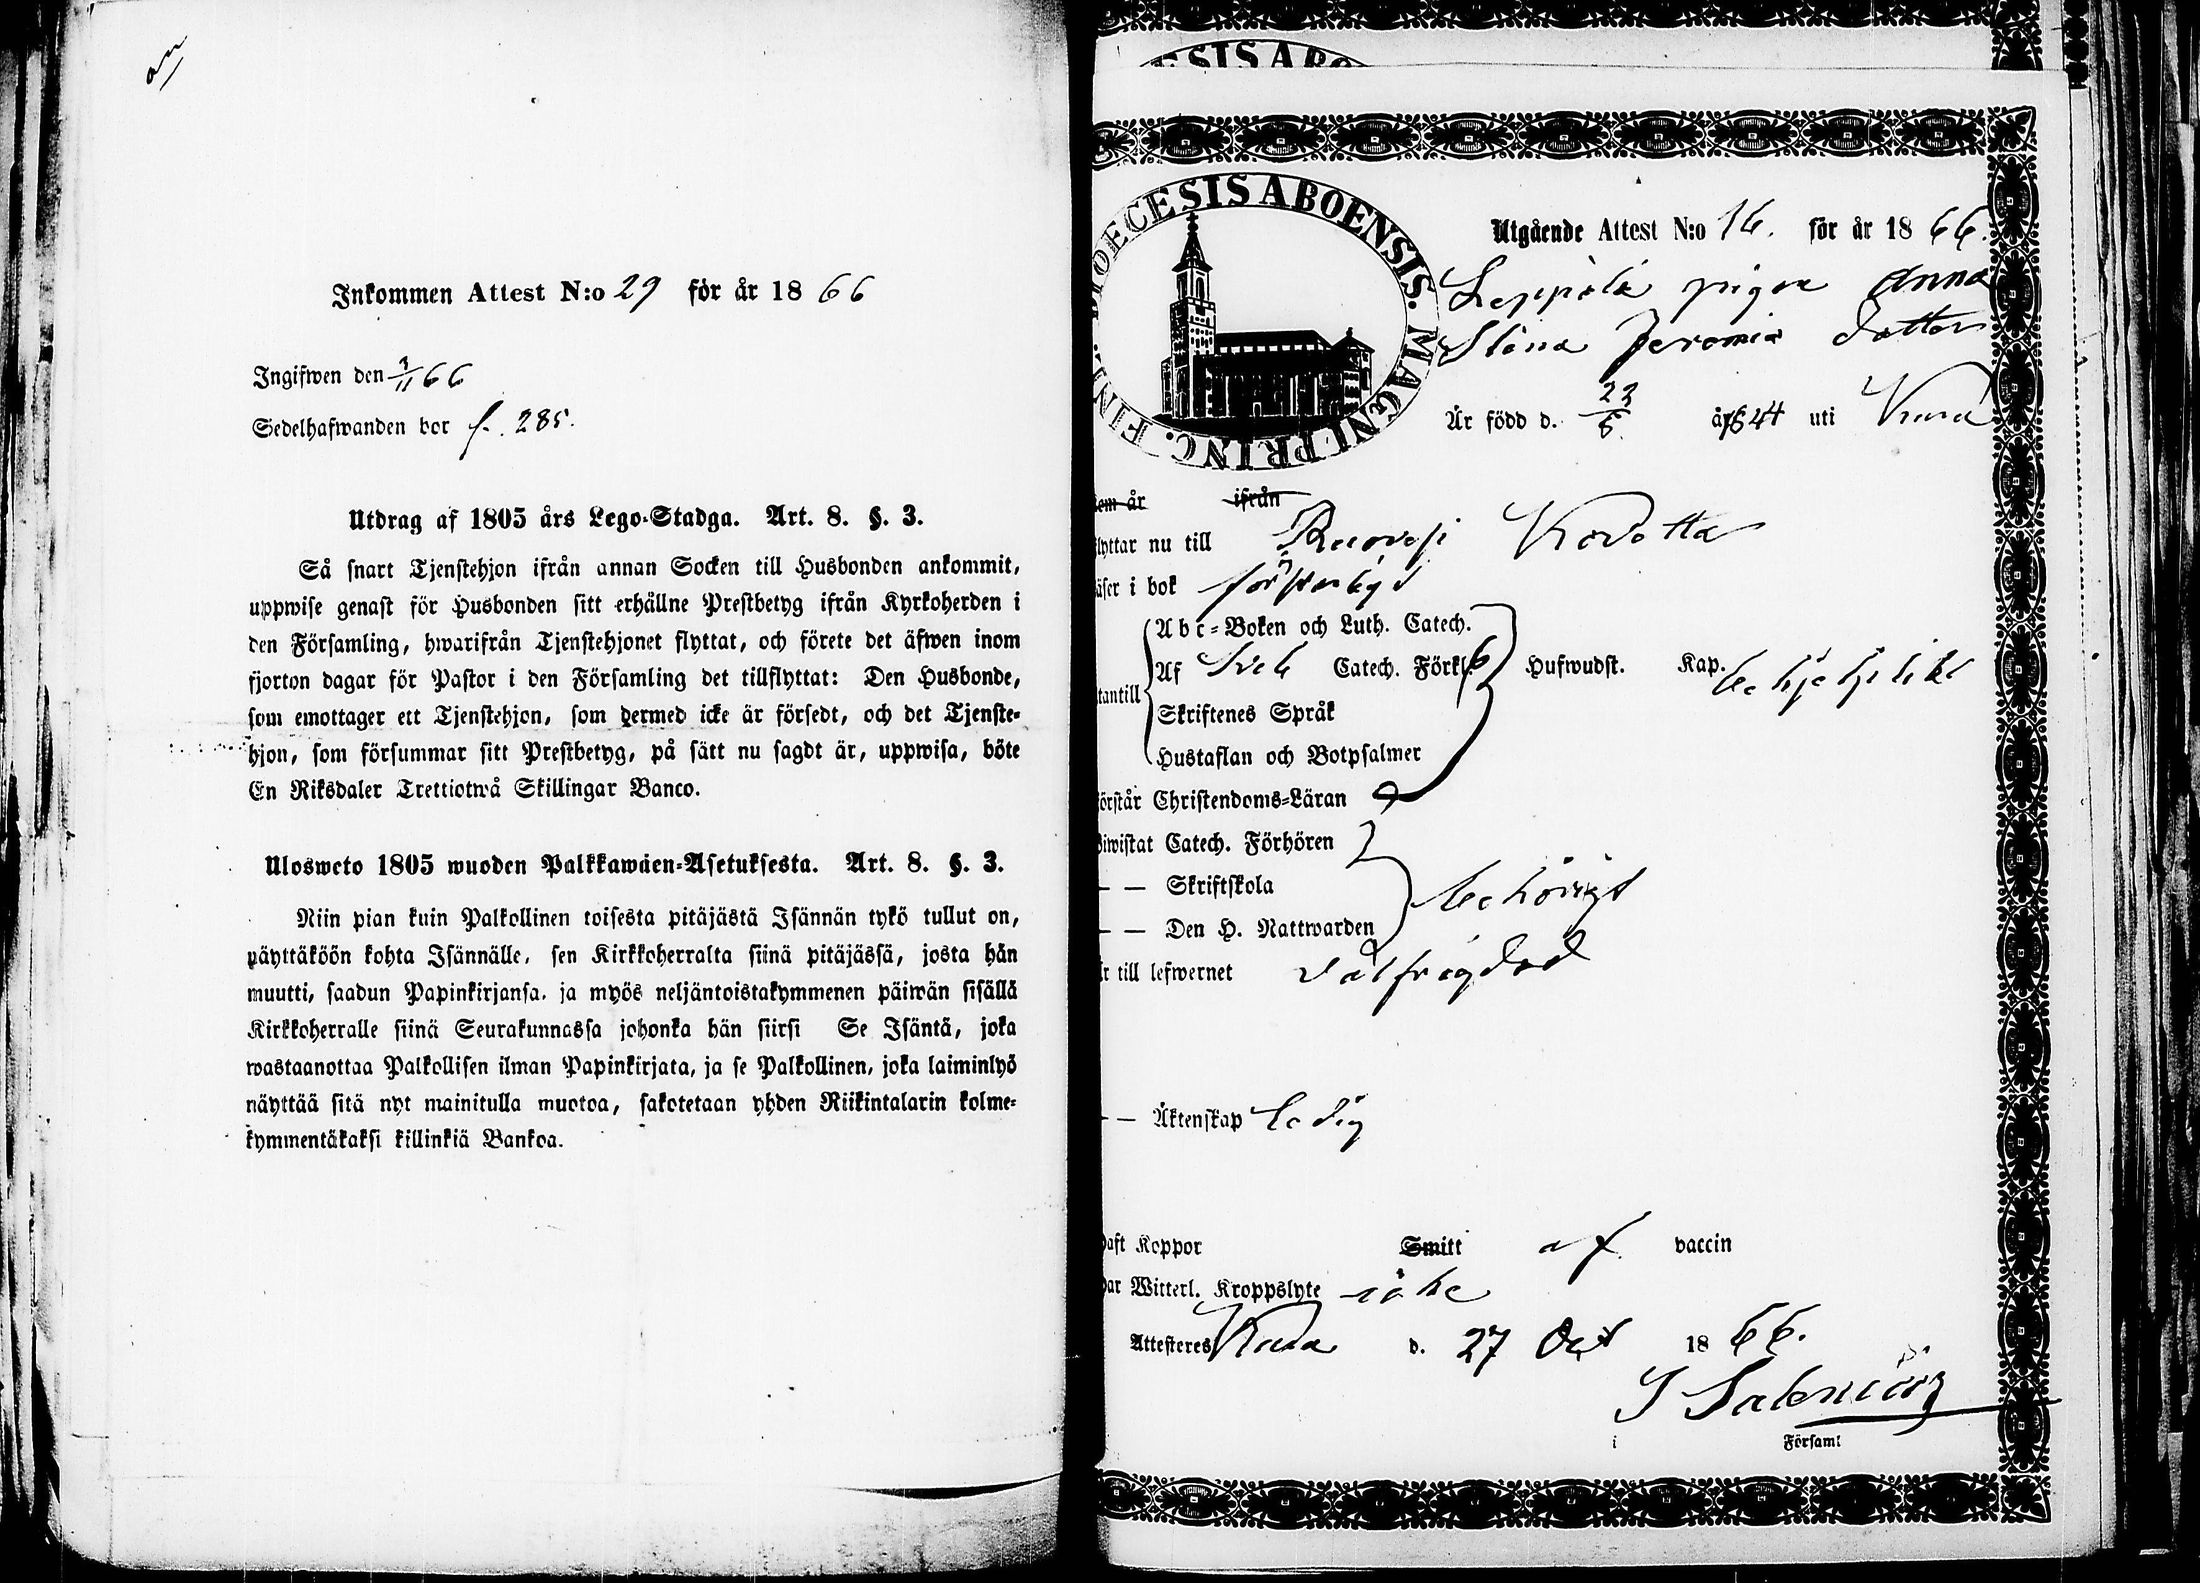 Inkommen Attest N:o 29 för år 1866
Ingifwen den 3/11 66
Sedelhafwanden bor f. 285.
Utdrag af 1805 års Lego-Stadga. Art. 8. §. 3.
Så snart Tjenstehjon ifrån annan Socken till Husbonden ankommit,
uppwise genast för Husbonden sitt erhållne Prestbetyg ifrån Kyrkoherden i
den Församling, hwarifrån Tjenstehjonet flyttat, och förete det äfwen inom
fjorton dagar för Pastor i den Församling det tillflyttat: Den Husbonde,
som emottager ett Tjenstehjon, som dermed icke är försedt, och det Tjenste-
hjon, som försummar sitt Prestbetyg, på sätt nu sagdt är, uppwisa, böte
En Riksdaler Trettiotwå Skillingar Banco.
Ulosweto 1805 wuoden Palkkawäen-Asetuksesta. Art. 8. §. 3.
Niin pian kuin Palkollinen toisesta pitäjästä Isännän tykö tullut on,
päyttäköön kohta Isännälle, sen Kirkkoherralta siinä pitäjässä, josta hän
muutti, saadun Papinkirjansa, ja myös neljäntoistakymmenen päiwän sisällä
Kirkkoherralle siinä Seurakunnassa johonka hän siirsi Se Isäntä, joka
wastaanottaa Palkollisen ilman Papinkirjata, ja se Palkollinen, joka laiminlyö
näyttää sitä nyt mainitulla muotoa, sakotetaan yhden Riikintalarin kolme-
kymmentäkaksi killinkiä Bankoa.
ESIS ABO
DIOECESIS ABOENSIS. MAGNI PRINC. FINL.
Utgående Attest N:o 16. för år 1866.
Leppälä pigan Anna
Stina Jeremia dotter
Är född d. 23/6 år 1844 uti Kuru
kom år ifrån
flyttar nu till Ruovesi
läser i bok försvarligt
Abc-Boken och Luth. Catech.
Af Sveb Catech. Förkl. 6 Hufwudst. Kap.
utantill
Skriftenes Språk
Hustaflan och Botpsalmer
förstår Christendoms-Läran
Biwistat Catech. Förhören
— — Skriftskola behörigt
— — Den H. Nattwarden
är till lefwernet välfrägdad
— — Äktenskap ledig
haft Koppor Smitt af vaccin
har Witterl. Kroppslyte icke
Attesteres Kuru d. 27 Oct 1866.
i Församl